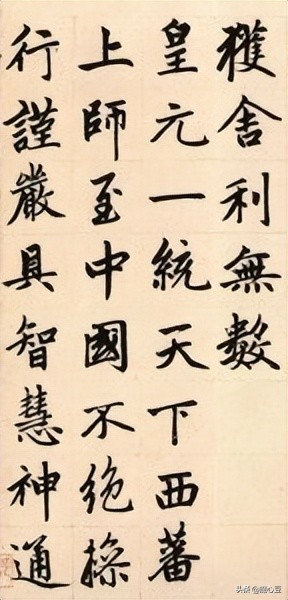 獲舍利無數
皇元一統天下西蕃
上師至中國不絶操
行謹嚴具智慧神通
头条